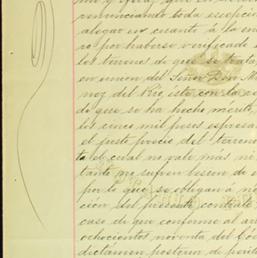 renunciando toda escepción
alegar en cuanto á la en
ro por haberse verificado
los terrenos de que se trata,
en union del Señor Don M
noz del Rio, éste con la
de que se ha hecho mérito,
los cinco mil pesos espresa
el justo precio del terreno
ta el cual no vale más ni
tanto no sufren lesion de
por lo que se obligan á no
ción del presente contrato
caso de que conforme al ar
ochocientos noventa del Có
dictamen posterior de perito